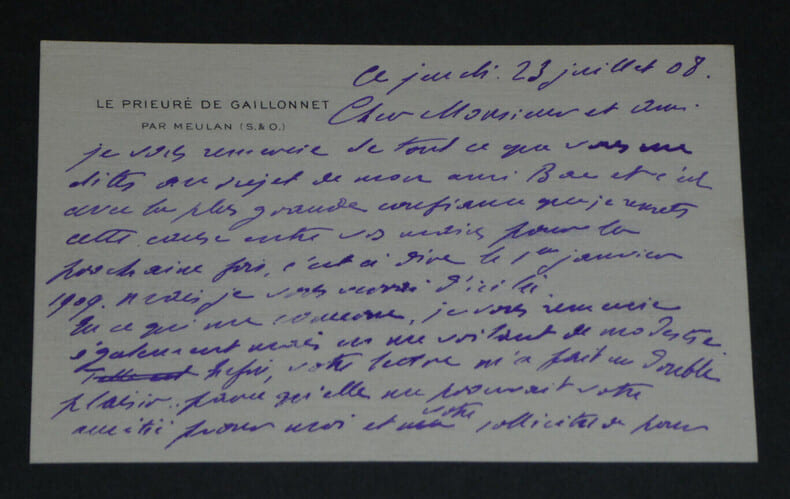 ce jeudi. 23 juillet 08.
LE PRIEURÉ DE GAILLONNET
PAR MEULAN (S.&O.)
Cher Monsieur et ami
je vous remercie de tout ce que vous me
dites au sujet de mon ami Bac et c'est
avec la plus grande confiance que je remets
cette cause entre vos mains pour la
prochaine fois, c'est à dire le 1er janvier
1909. mais je vous verrai d'ici là.
En ce qui me concerne, je vous remercie
également mais en me voilant de modestie
refus, votre lettre m'a fait un double
plaisir.. parce qu'elle me prouvait votre
amitié pour moi et votre sollicitude pour